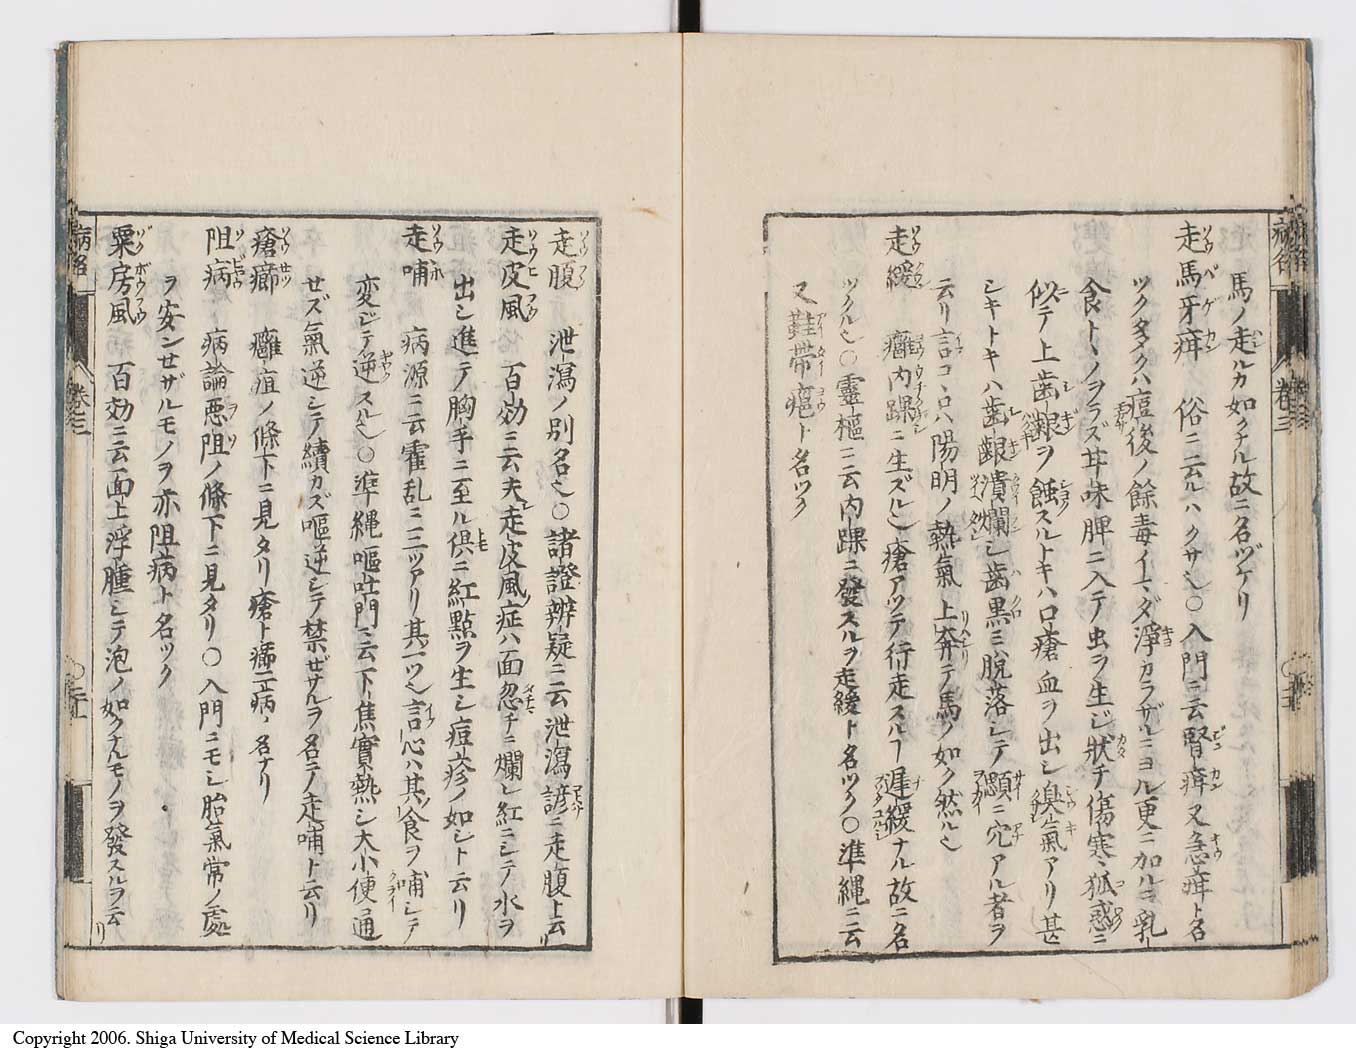 馬ノ走ルカ如クナル故ニ名ヅケリ
走馬牙疳 俗ニ云ルハクサ也〇入門ニ云腎疳又急疳ト名
ツク多クハ痘後ノ餘毒イマダ淨カラザルニヨル更ニ加ルニ乳
食トヽノヲラズ甘味脾ニ入テ虫ヲ生ジ狀チ傷寒ノ狐惑ニ
似テ上歯齦ヲ蝕スルトキハ口瘡血ヲ出シ臭氣アリ甚
シキトキハ歯齦潰爛シ歯黒ミ脱落シテ顋ニ穴アル者ヲ
云リ言コヽロハ陽明ノ熱氣上奔テ馬ノ如ク然ル也
走緩 癰内踝ニ生ズル也瘡アツテ行走スルヿ遲緩ナル故ニ名
ツクル也〇靈樞ニ云内踝ニ發スルヲ走緩ト名ツク〇準縄ニ云
又鞋帶疽ト名ツク
走腹 泄瀉ノ別名也〇諸證辨疑ニ云泄瀉諺ニ走腹ト云リ
走皮風 百効ニ云夫走皮風症ハ面忽チニ爛レ紅ニシテ水ヲ
出シ進テ胸手ニ至ル倶ニ紅點ヲ生シ痘疹ノ如シト云リ
走哺 病源ニ云霍乱ニ三ツアリ其一ツ也言心ハ其食ヲ哺シテ
変ジテ逆スル也〇準縄嘔吐門ニ云下焦實熱シ大小便通
せズ氣逆シテ續カズ嘔逆シテ禁ぜザルヲ名テ走哺ト云リ
瘡癤 癰疽ノ條下ニ見タリ瘡ト癤二病ノ名ナリ
阻病 病論悪阻ノ條下ニ見タリ〇入門ニモシ胎氣常ノ處
ヲ安ンせザルモノヲ亦阻病ト名ツク
粟房風 百効ニ云面上浮腫シテ泡ノ如クナルモノヲ發スルヲ云リ
病名 卷之三
Copyright 2006. Shiga University of Medical Science Library